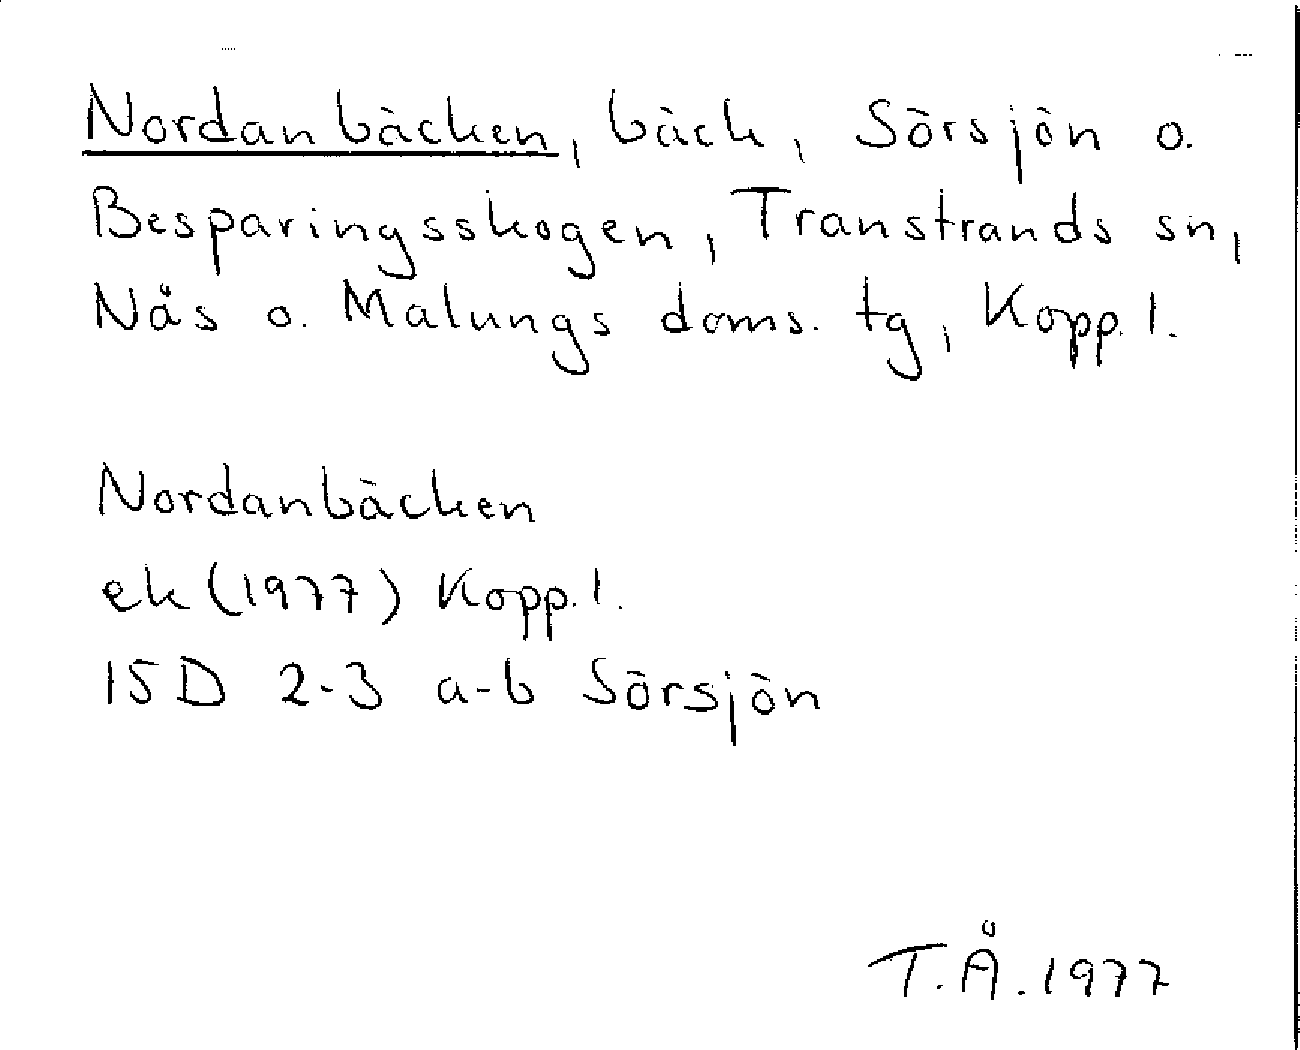 Nordanbäcken, bäck, Sörsjön o.
Besparingsskogen, Transtrands sn,
Nås o. Malungs doms. tg, Kopp. l.
Nordanbäcken
ek (1977) Kopp. l.
15D 2-3 a-b Sörsjön
T.Å. 1977